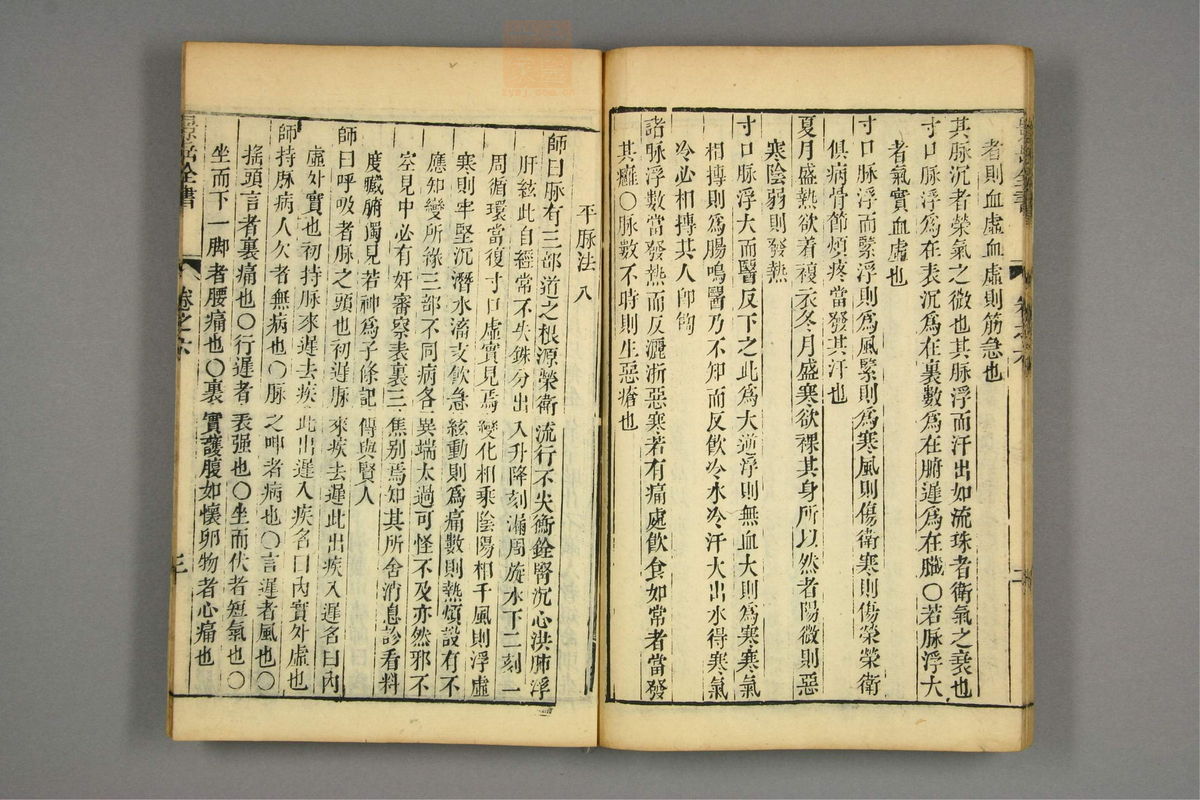 者則血虛血虛則筋急也
其脉沉者榮氣之微也其脉浮而汗出如流珠者衛氣之衰也
寸口脉浮為在表沉為在裏數為在腑遲為在臟〇若脉浮大
者氣實血虛也
寸口脉浮而緊浮則為風緊則為寒風則傷衛寒則傷榮榮衛
俱病骨節煩疼當發其汗也
夏月盛熱欲着複衣冬月盛寒欲裸其身所以然者陽微則惡
寒陰弱則發熱
寸口脉浮大而醫反下之此為大逆浮則無血大則為寒寒氣
相摶則為腸鳴醫乃不知而反飲冷水冷汗大出水得寒氣
冷必相摶其人卽𩚬
諸脉浮數當發熱而反灑淅惡寒若有痛處飲食如常者當發
其癰〇脉數不時則生惡瘡也
卷之六
二
平脉法 八
師曰脉有三部道之根源榮衛流行不失衡銓腎沉心洪肺浮
肝絃此自經常不失銖分出入升降刻漏周旋水下二刻一
周循環當復寸口虛實見焉變化相乘陰陽相干風則浮虛
寒則牢堅沉潛水滀支飲急絃動則為痛數則熱煩設有不
應知變所緣三部不同病各異端太過可怪不及亦然邪不
空見中必有奸審察表裏三焦别焉知其所舍消息診看料
度臟腑獨見若神為子條記傳與賢人
師曰呼吸者脉之頭也初遲脉來疾去遲此出疾入遲名曰內
虛外實也初持脉來遲去疾此出遲入疾名曰內實外虛也
師持脉病人欠者無病也〇脉之呻者病也〇言遲者風也〇
搖頭言者裏痛也〇行遲者表强也〇坐而伏者短氣也〇
坐而下一脚者腰痛也〇裏實護腹如懷卵物者心痛也
全書
卷之六
三